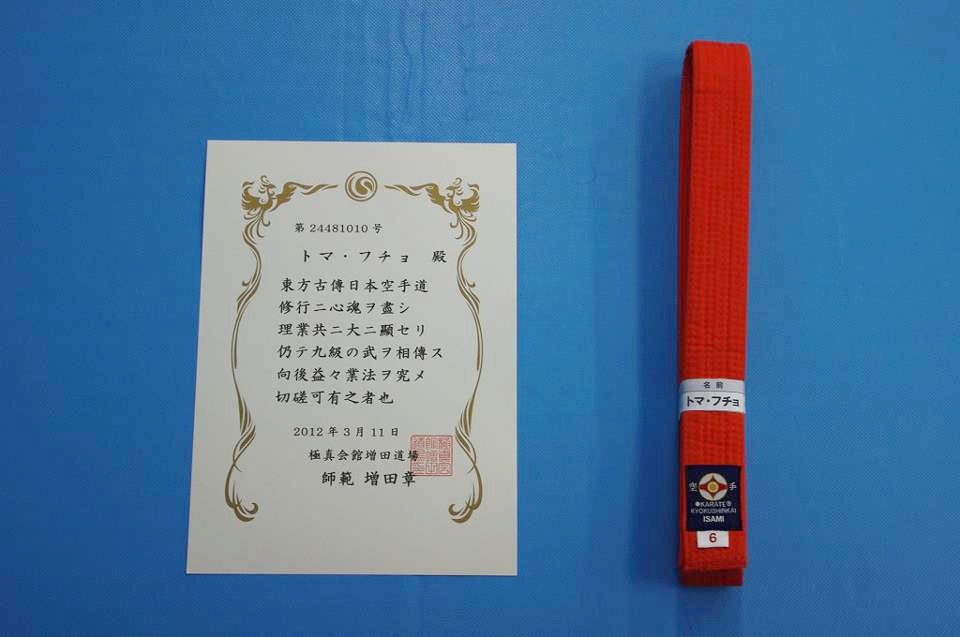 第 24481010 号
トマ・フチョ 殿
東方古傳日本空手道
修行ニ心魂ヲ盡シ
理業共ニ大ニ顯セリ
仍テ九級の武ヲ相傳ス
向後益々業法ヲ究メ
切磋可有之者也
2012 年 3 月 11 日
極真会館増田道場
師範 増田章
名 前
トマ・フチョ
空 手
KARATE
KYOKUSHINKAI
ISAMI
6